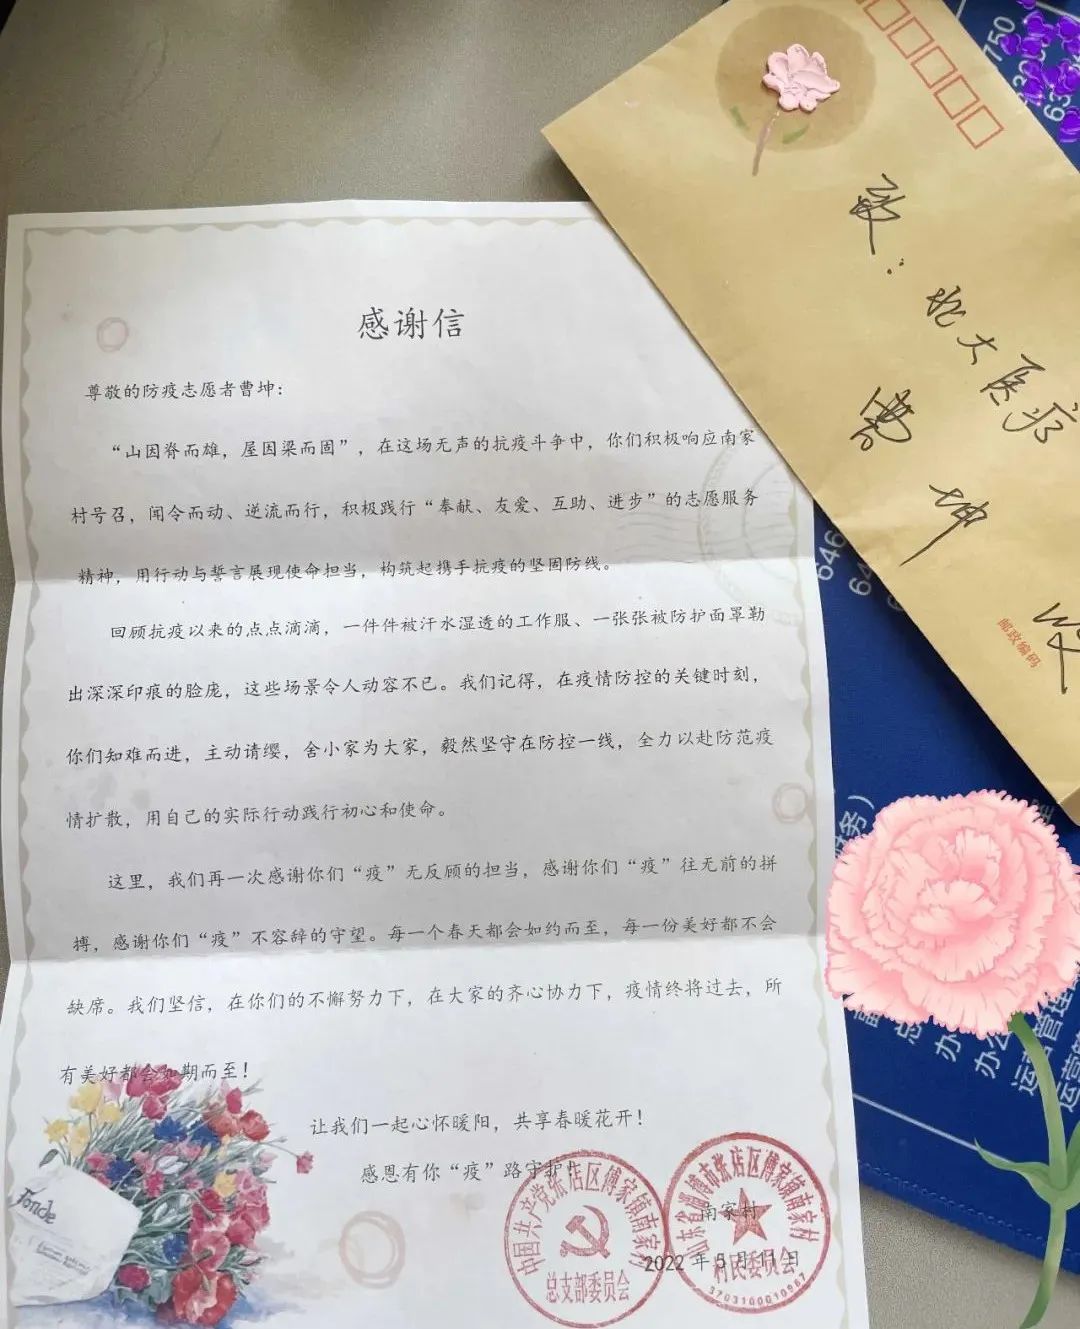 感谢信
尊敬的防疫志愿者曹坤：
“山因脊而雄，屋因梁而固”，在这场无声的抗疫斗争中，你们积极响应南家
村号召，闻令而动、逆流而行，积极践行“奉献、友爱、互助、进步”的志愿服务
精神，用行动与誓言展现使命担当，构筑起携手抗疫的坚固防线。
回顾抗疫以来的点点滴滴，一件件被汗水湿透的工作服、一张张被防护面罩勒
出深深印痕的脸庞，这些场景令人动容不已。我们记得，在疫情防控的关键时刻，
你们知难而进，主动请缨，舍小家为大家，毅然坚守在防控一线，全力以赴防范疫
情扩散，用自己的实际行动践行初心和使命。
这里，我们再一次感谢你们“疫”无反顾的担当，感谢你们“疫”往无前的拼
搏，感谢你们“疫”不容辞的守望。每一个春天都会如约而至，每一份美好都不会
缺席。我们坚信，在你们的不懈努力下，在大家的齐心协力下，疫情终将过去，所
有美好都会如期而至！
让我们一起心怀暖阳，共享春暖花开！
感恩有你“疫”路守护！
南家村
2022年5月11日
中国共产党张店区傅家镇南家村
总支部委员会
山东省淄博市张店区傅家镇南家村
村民委员会
3703100010967
致：北大医疗
曹坤
收
邮政编码
Fonde
750
646
务）
总
办
办公
运营管理
运营管